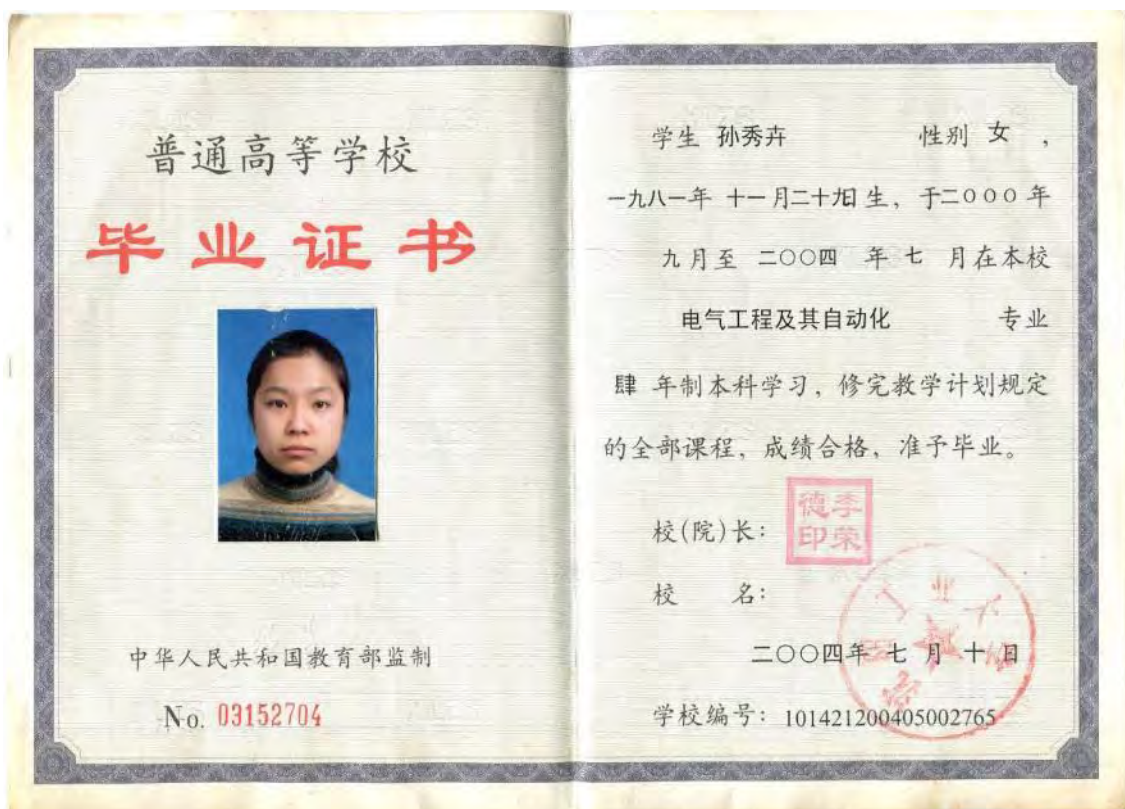 普通高等学校
毕业证书
中华人民共和国教育部监制
No. 03152704
学生 孙秀卉 性别 女 ,
一九八一年 十一月二十九日生, 于二〇〇〇年
九月至 二〇〇四 年 七 月在本校
电气工程及其自动化 专业
肆 年制本科学习, 修完教学计划规定
的全部课程, 成绩合格, 准予毕业。
校(院)长:
李荣德印
校 名:
工业大
二〇〇四年 七 月 十 日
学校编号: 101421200405002765